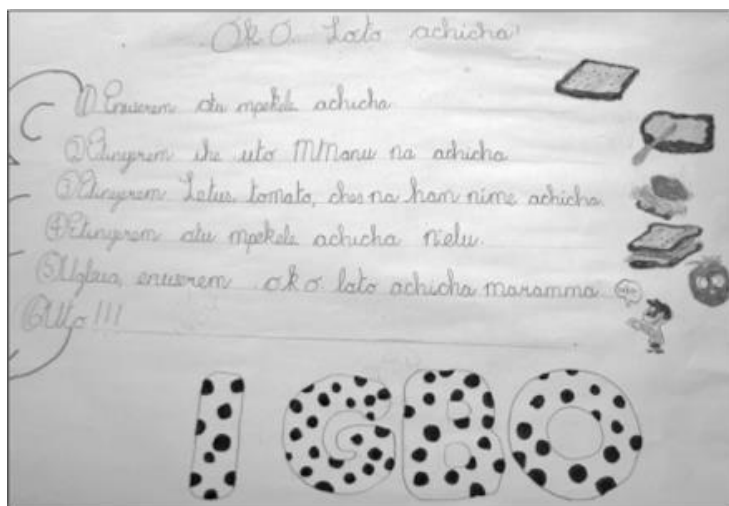 Ok O. Loto achicha!
① Enwerem otu mpekele achicha
② Etinyerem ihe uto MManu na achicha
③ Etinyerem Letus, tomato, ches na ham nime achicha.
④ Etinyerem otu mpekele achicha n'elu.
⑤ Ugbua, enwerem ok o. loto achicha maramma
⑥ Uto!!!
IGBO